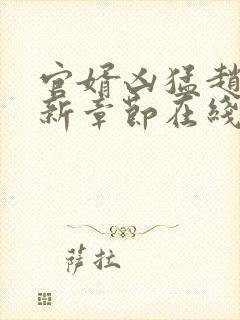 官婿凶猛趙
新章節在綫
薩拉